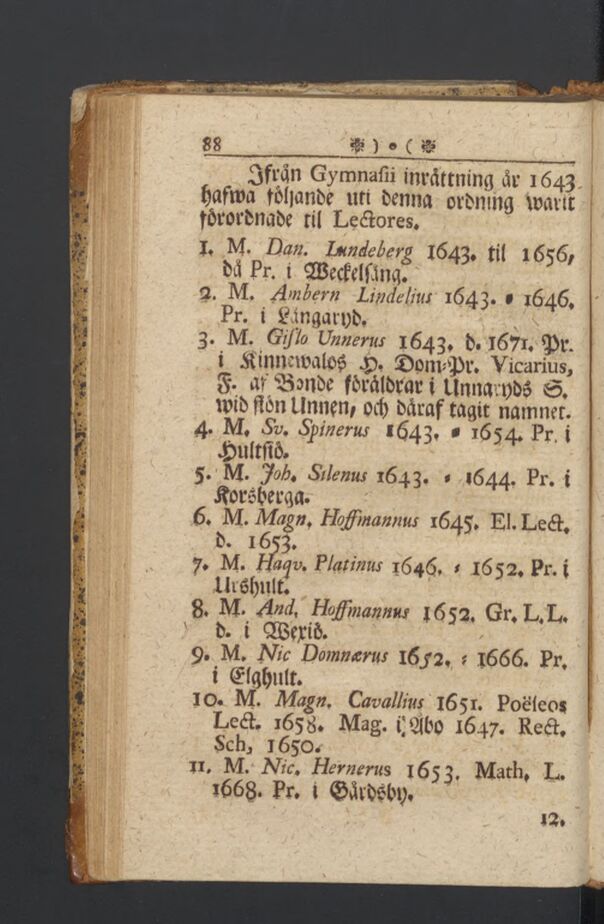 88 ❉ ) ∘ ( ❉
Ifrån Gymnasii inrättning år 1643
hafwa följande uti denna ordning warit
förordnade til Lectores.
1. M. Dan. Lundeberg 1643. til 1656,
då Pr. i Weckelsång.
2. M. Ambern Lindelius 1643. = 1646.
Pr. i Långaryd.
3. M. Gislo Unnerus 1643. d. 1671. Pr.
i Kinnewalds H. Dom-Pr. Vicarius,
F. af Bonde föräldrar i Unnaryds S.
wid siön Unnen, och däraf tagit namnet.
4. M. Sv. Spinerus 1643. = 1654. Pr. i
Hultsiö.
5. M. Joh. Silenus 1643. = 1644. Pr. i
Korsberga.
6. M. Magn. Hoffmannus 1645. El. Lect.
d. 1653.
7. M. Haqv. Platinus 1646. = 1652. Pr. i
Urshult.
8. M. And. Hoffmannus 1652. Gr. L. L.
d. i Wexiö.
9. M. Nic Domnærus 1652. = 1666. Pr.
i Elghult.
10. M. Magn. Cavallius 1651. Poëseos
Lect. 1658. Mag. i Åbo 1647. Rect.
Sch, 1650.
11. M. Nic. Hernerus 1653. Math. L.
1668. Pr. i Gårdsby.
12.